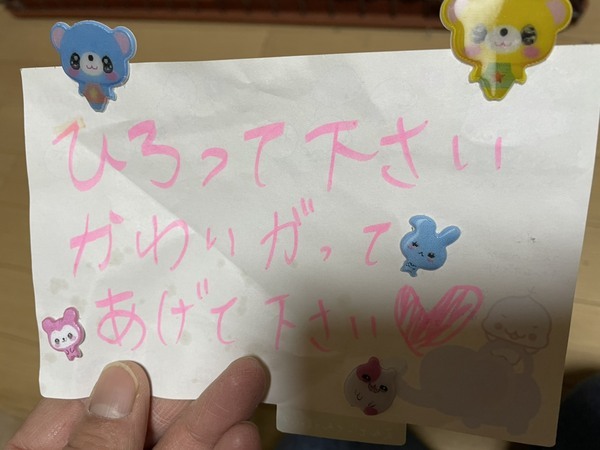 ひろって下さい
かわいがって
あげて下さい